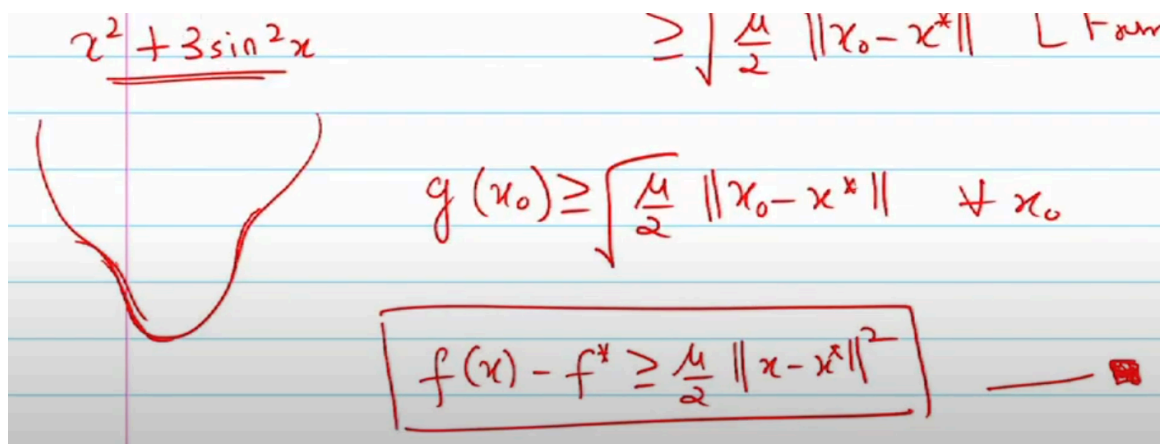 x² + 3sin²x
≥ √(μ/2) ||x₀ - x*|| [
g(x₀) ≥ √(μ/2) ||x₀ - x*|| ∀ x₀
f(x) - f* ≥ μ/2 ||x - x*||²